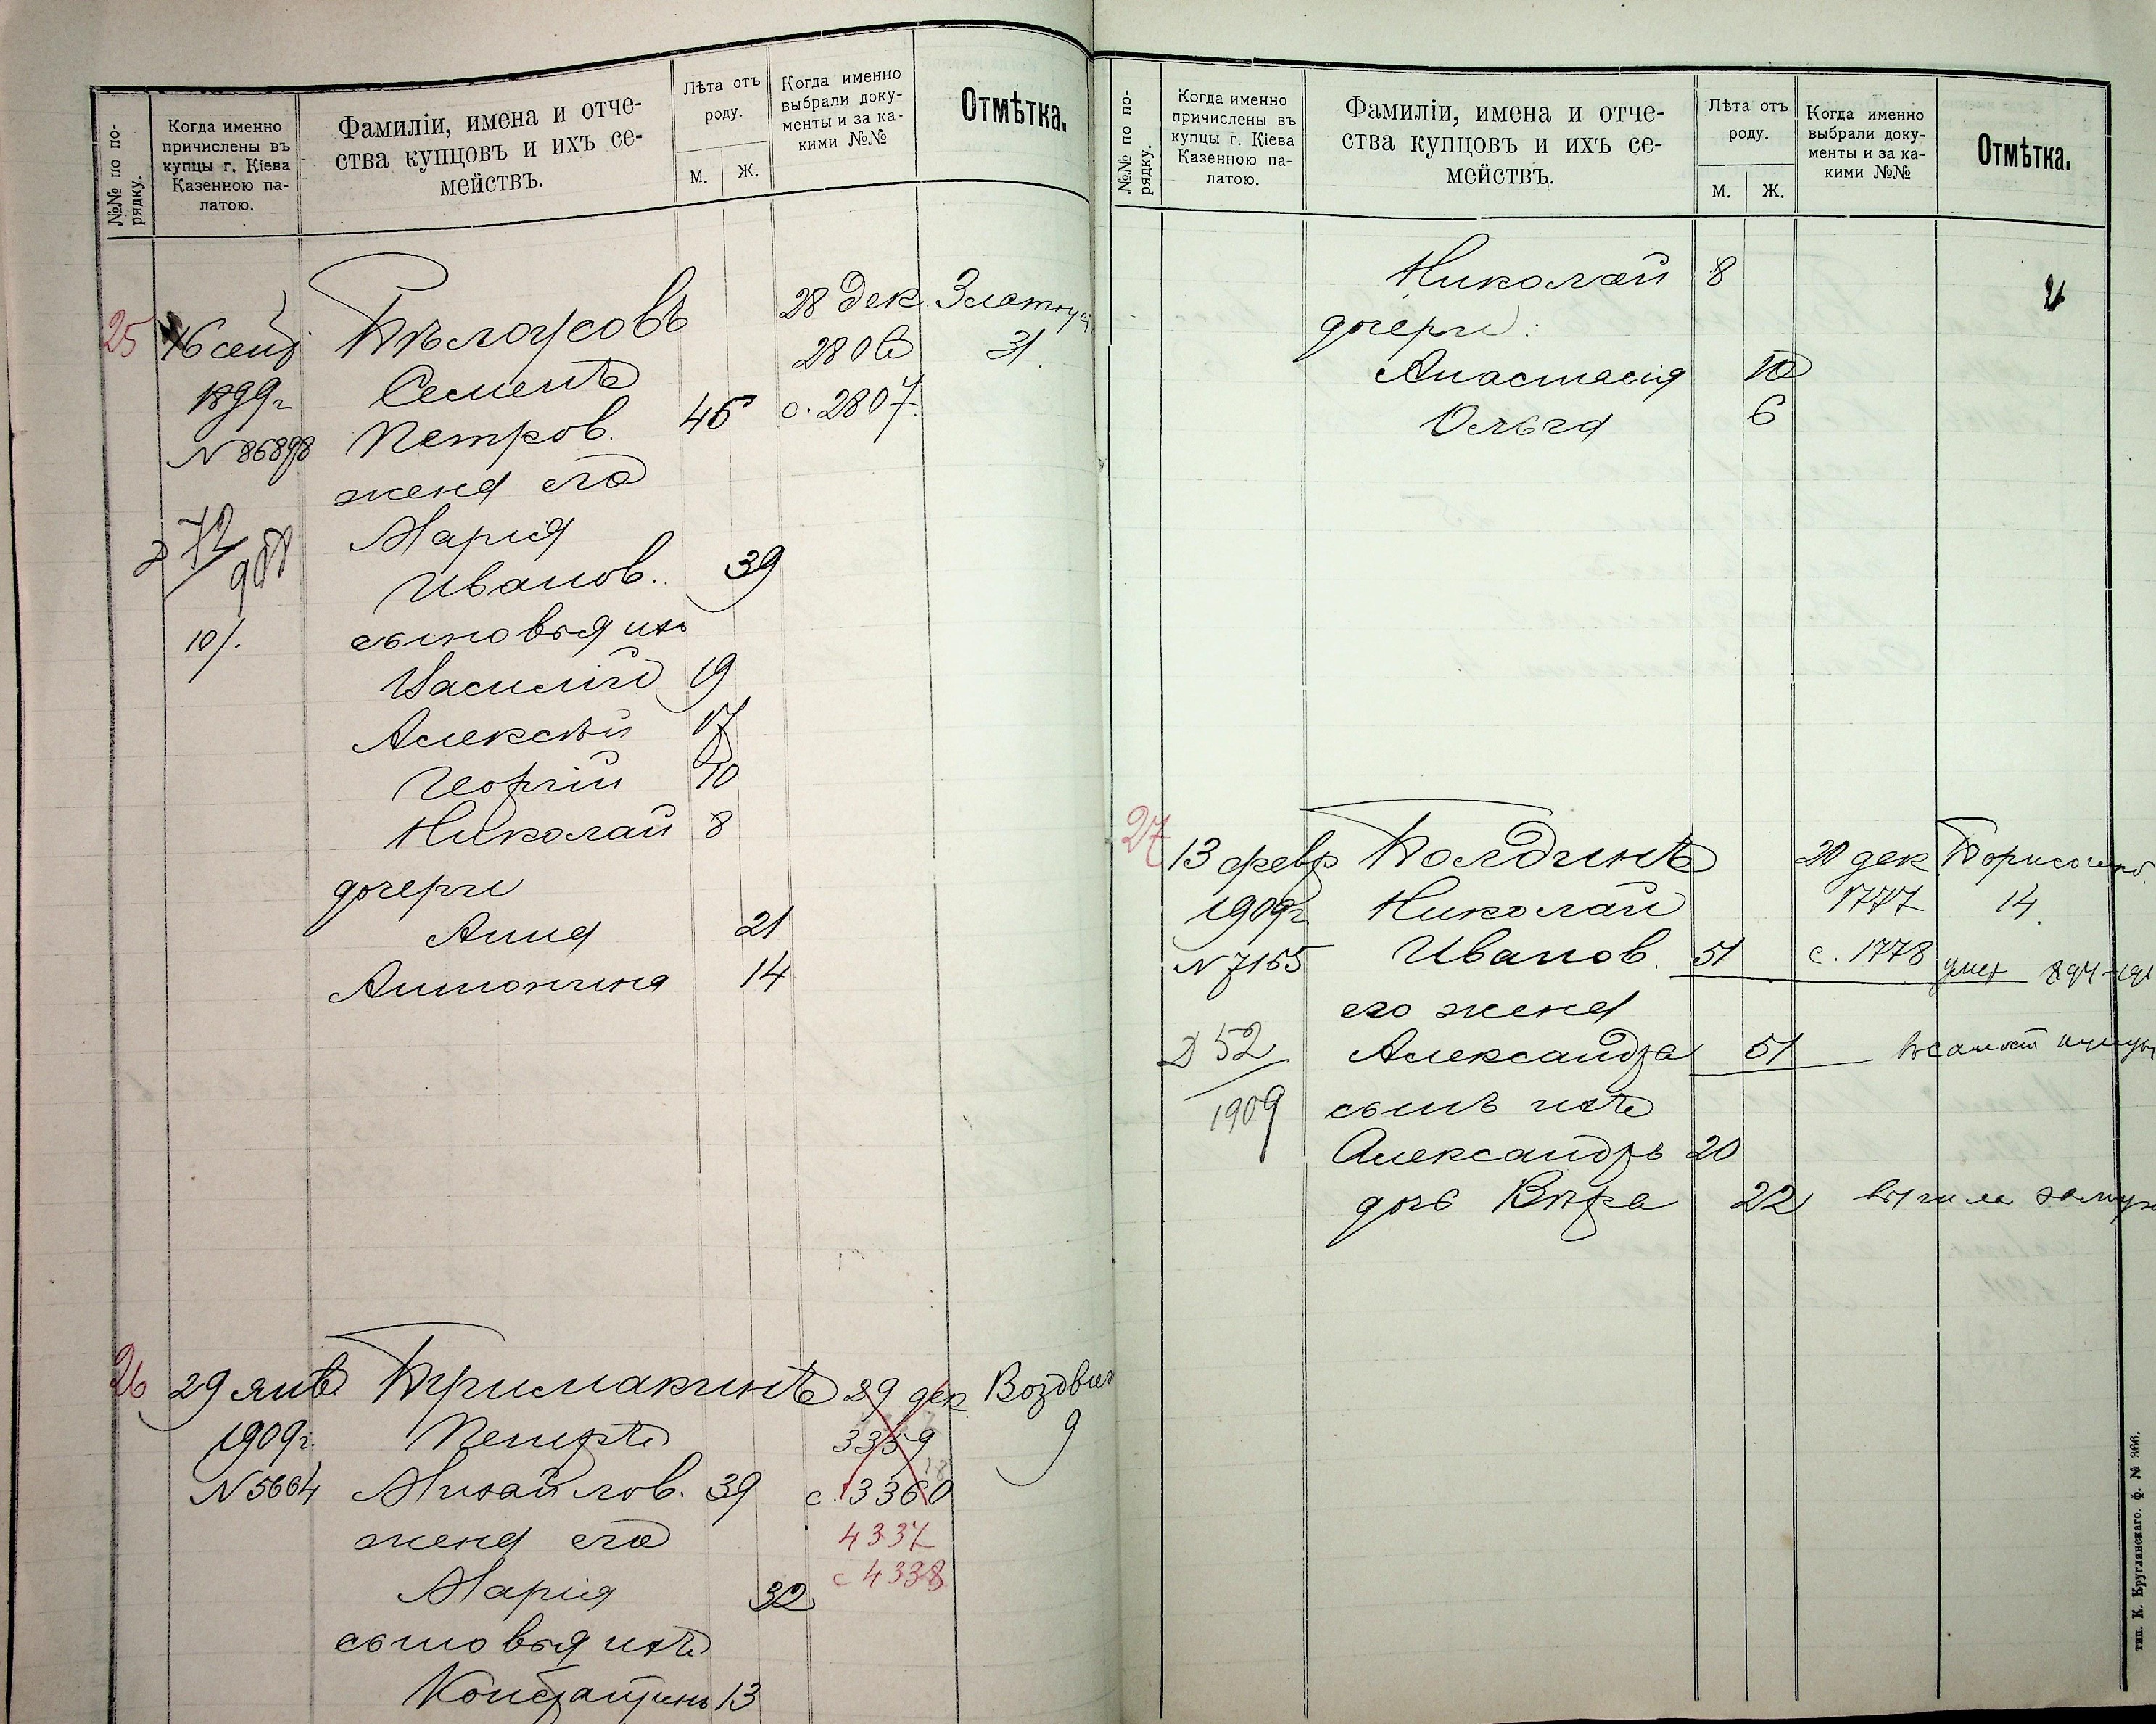 №№ по по-
рядку.
Когда именно
причислены въ
купцы г. Кіева
Казенною па-
латою.
Фамиліи, имена и отче-
ства купцовъ и ихъ се-
мействъ.
Лѣта отъ
роду.
М. Ж.
Когда именно
выбрали доку-
менты и за ка-
кими №№
Отмѣтка.
25 16 сент Бѣлоусовъ 28 дек. Златоуст
1899г Семенъ 2806 31.
N 86898 Петров. 45 с. 2807.
жена его
Д 72/908 Марія
Иванов.. 39
10/. сыновья ихъ
Василій 19
Алексѣй 17
Георгій 10
Николай 8
дочери
Анна 21
Антонина 14
26 29 янв Бурмакинъ 29 дек Воздвиж
1909г. Петръ 3359 9
N 5664 Михайлов. 39 с. 3360
жена его 4337
Марія 32 с 4338
сыновья ихъ
Константинъ 13
№№ по по-
рядку.
Когда именно
причислены въ
купцы г. Кіева
Казенною па-
латою.
Фамиліи, имена и отче-
ства купцовъ и ихъ се-
мействъ.
Лѣта отъ
роду.
М. Ж.
Когда именно
выбрали доку-
менты и за ка-
кими №№
Отмѣтка.
Николай 8
дочери:
Анастасія 10
Ольга 6
27 13 февр Болдинъ 20 дек Борисоглеб.
1909г. Николай 1777 14.
N 7165 Иванов. 51 с. 1778 умер
его жена
Д 52 Александра 51
1909 сынъ ихъ
Александръ 20
дочь Вѣра 22 вышла замуж
тип. К. Круглянскаго. ф. № 366.